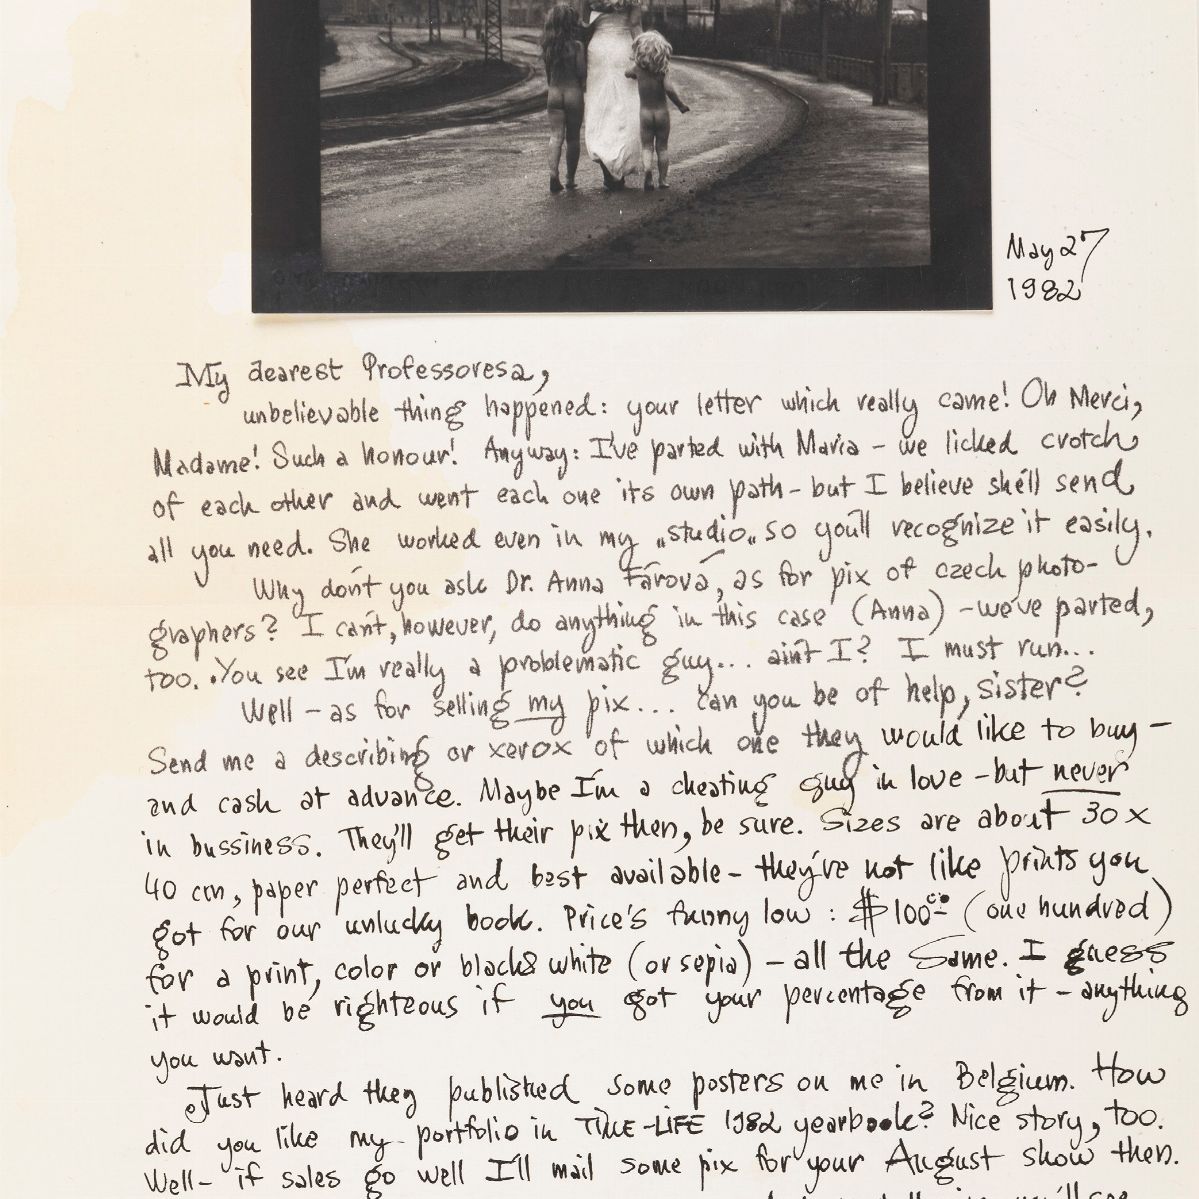 May 27
1982
My dearest Professoresa,
unbelievable thing happened: your letter which really came! Oh Merci,
Madame! Such a honour! Anyway: I've parted with Maria – we licked crotch
of each other and went each one its own path – but I believe she'll send
all you need. She worked even in my „studio„ so you'll recognize it easily.
Why don't you ask Dr. Anna Fárová, as for pix of czech photo-
graphers? I can't, however, do anything in this case (Anna) – we've parted,
too. You see I'm really a problematic guy... ain't I? I must run...
Well – as for selling my pix... can you be of help, sister?
Send me a describing or xerox of which one they would like to buy –
and cash at advance. Maybe I'm a cheating guy in love – but never
in bussiness. They'll get their pix then, be sure. Sizes are about 30 x
40 cm, paper perfect and best available – they're not like prints you
got for our unlucky book. Price's funny low : $100 (one hundred)
for a print, color or black & white (or sepia) – all the same. I guess
it would be righteous if you got your percentage from it – anything
you want.
Just heard they published some posters on me in Belgium. How
did you like my portfolio in TIME-LIFE 1982 yearbook? Nice story, too.
Well – if sales go well I'll mail some pix for your August show then.